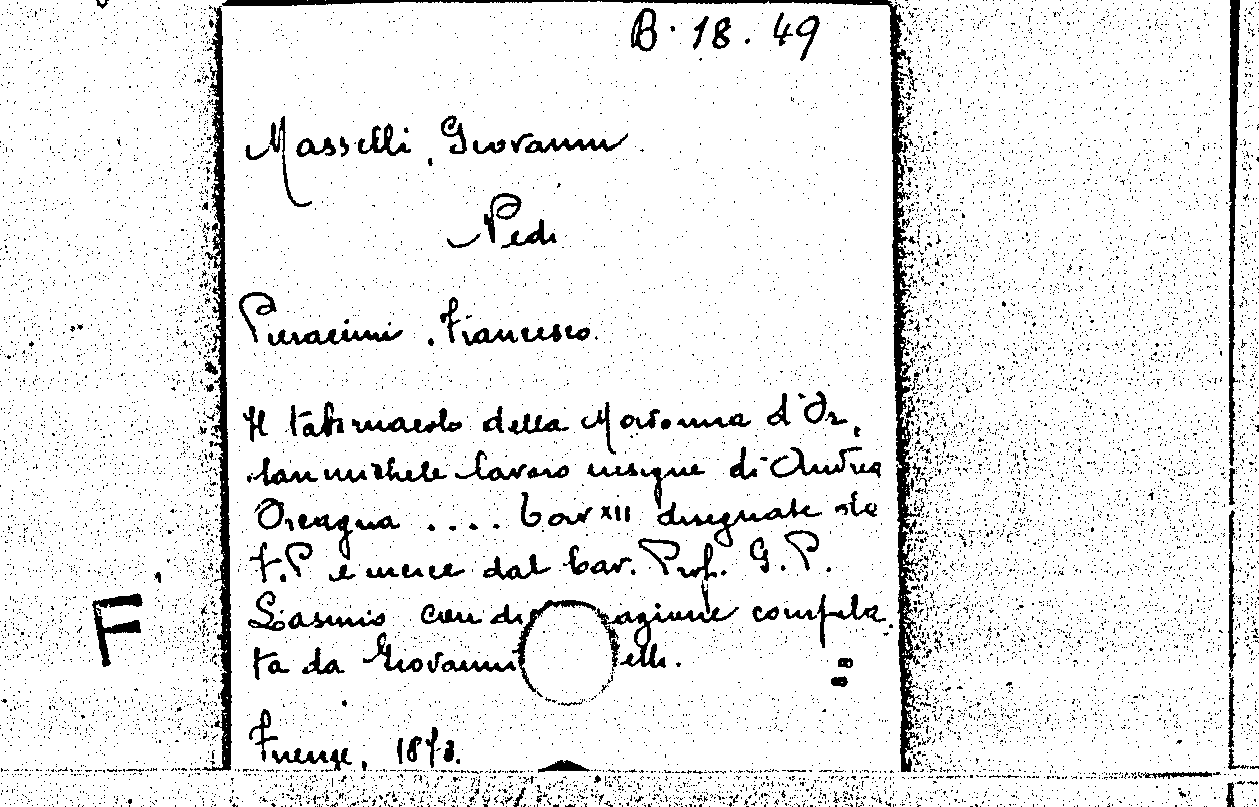 B. 18. 49
Masselli, Giovanni
Vedi
Pieraccini, Francesco
Il tabernacolo della Madonna d'Or,
sanmichele lavoro insigne di Andrea
Orcagna .... tav XII disegnate da
F.P e incise dal Cav. Prof. G. P.
Lasinio con di azione compila
ta da Giovanni elli.
Firenze, 187
F